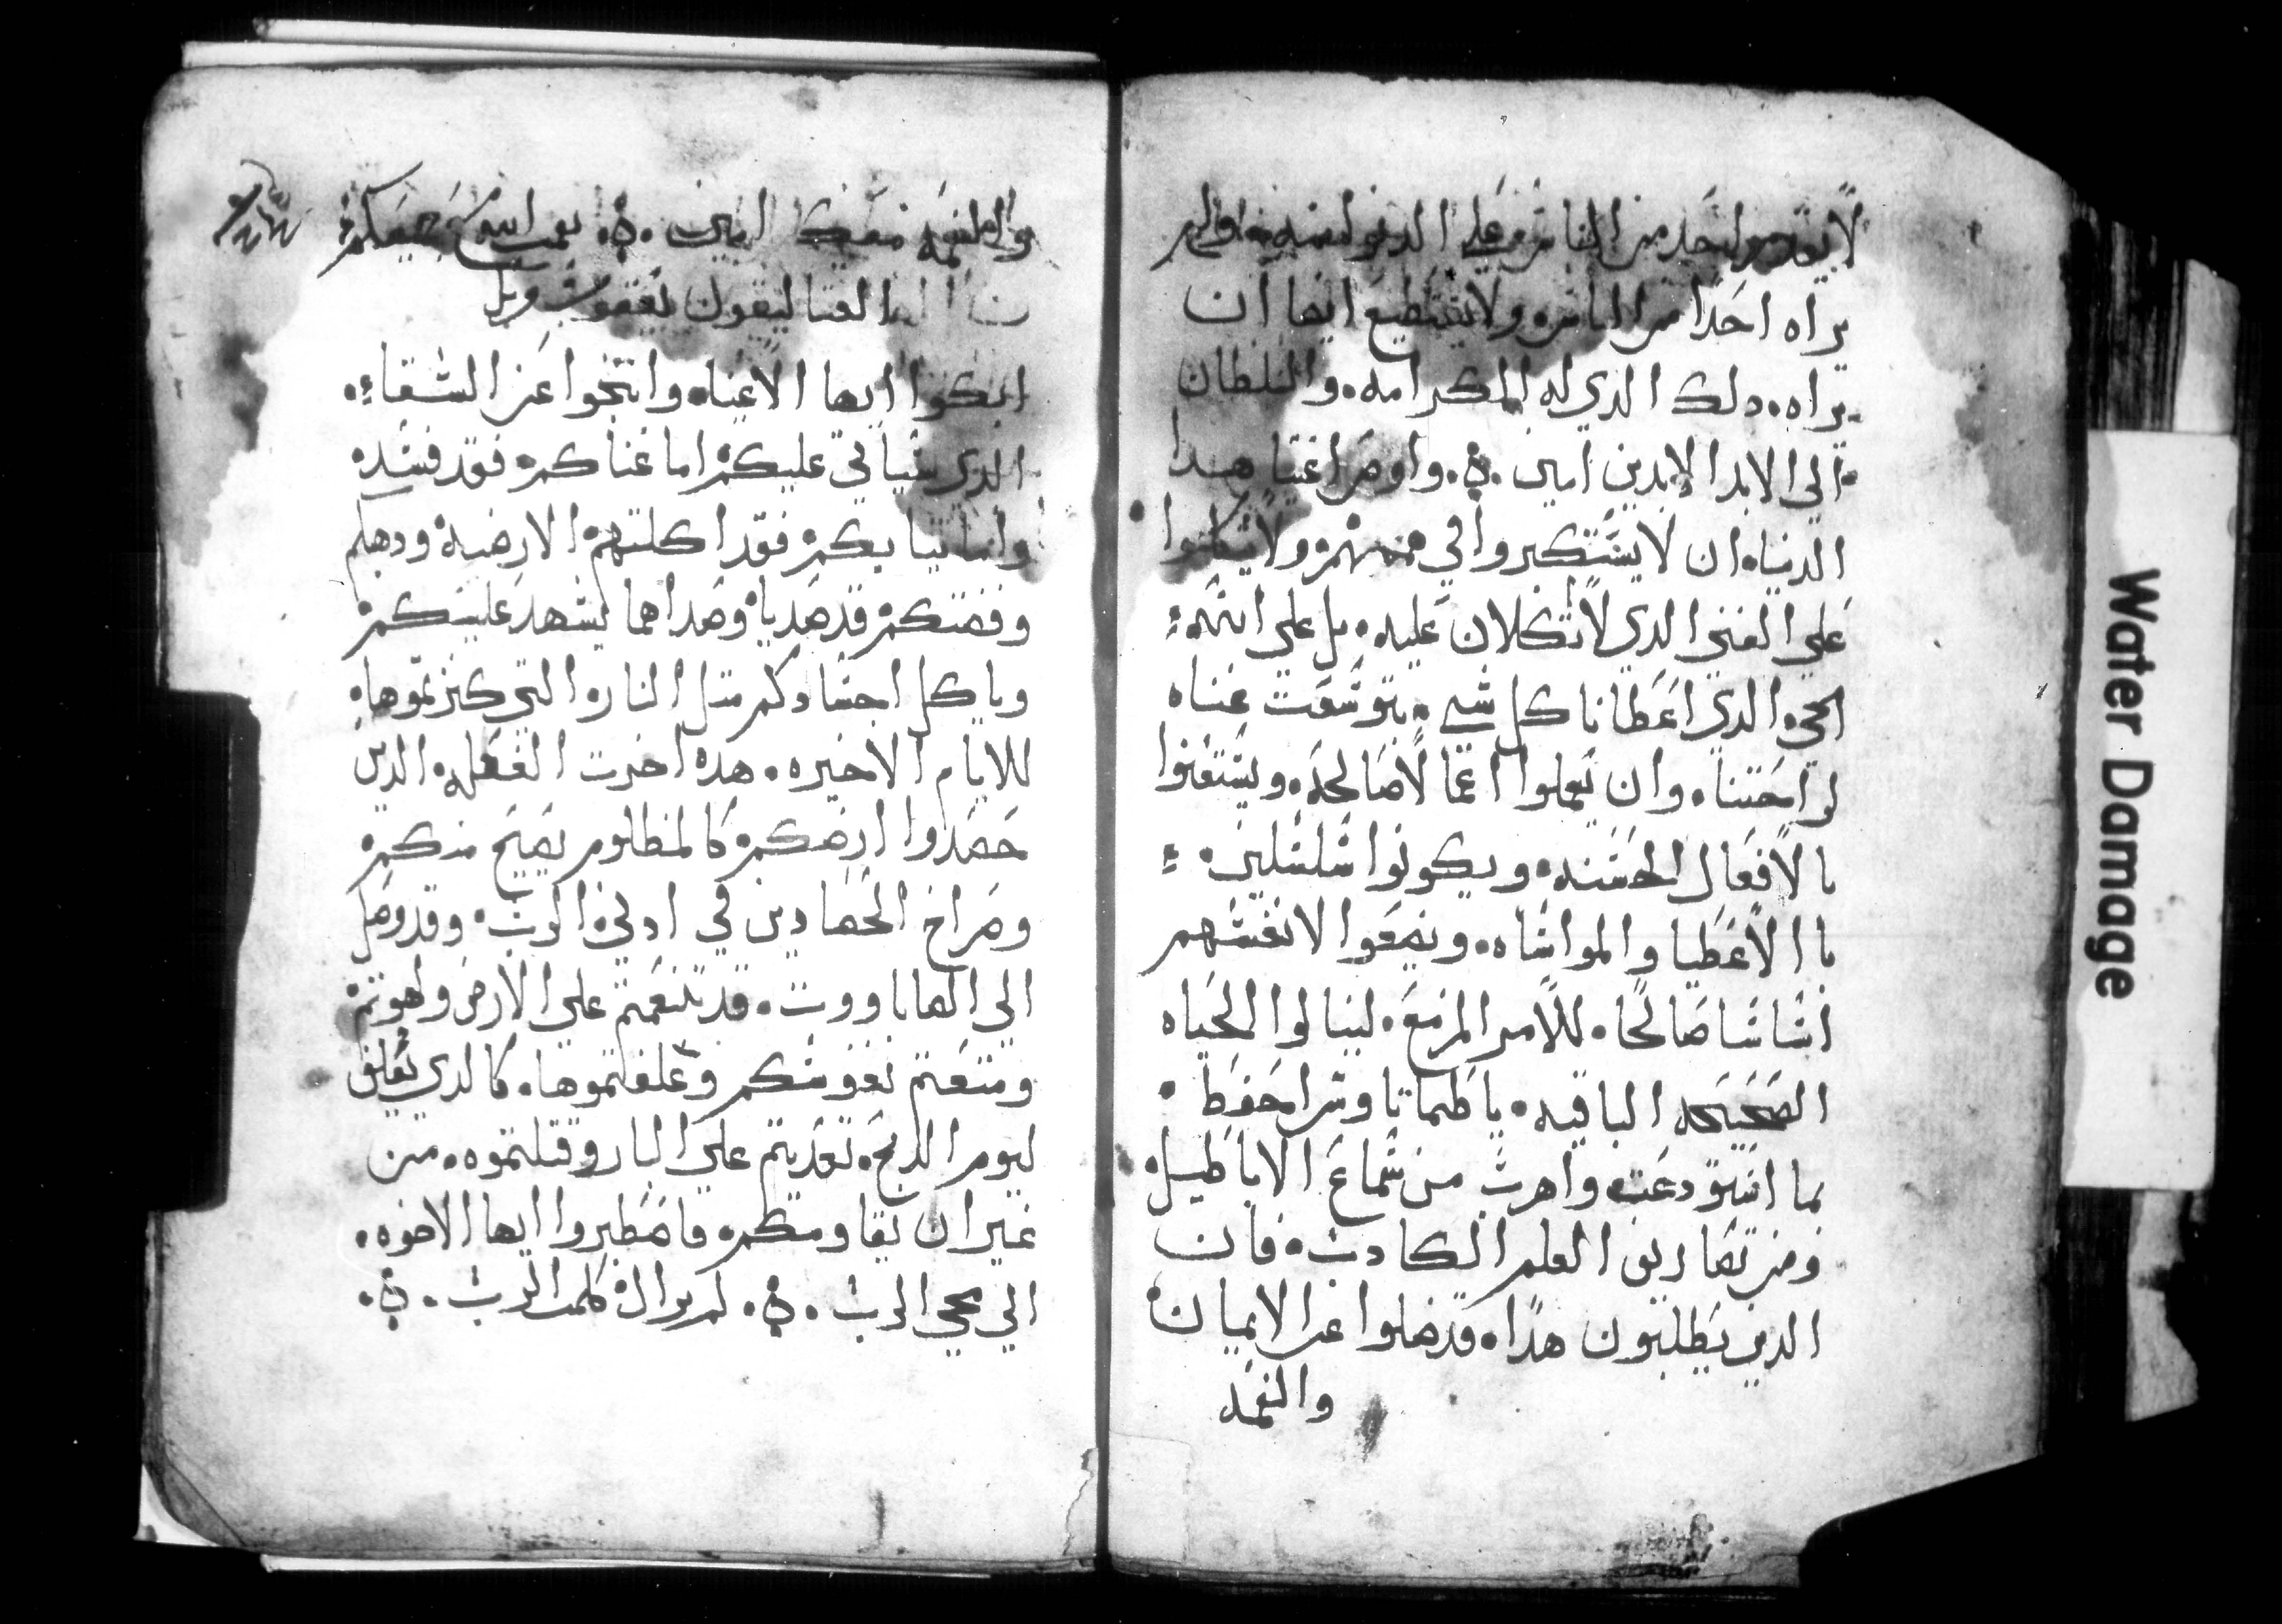 لا يقدر احد من الناس علي الدنو اليه ولم
يراه احدا من الناس ولا يستطيع ايضا ان
يراه. دلك الدي له الكرامه. والسلطان
الي الابد الابدين امين. واوص اغنيا هدا
الدنيا. ان لا يستكبروا في ولا يتكلوا
علي الغني الدي لا اتكلان عليه. بل علي الله
الحي الدي اعطانا كل شي. بتوسعت غناه
لراحتنا. وان يعملوا اعمالا صالحه. ويستغنوا
بالافعال الحسنه. ويكونوا سلسلين.
باالاعطيا والمواساه. ويضعوا لانفسهم
اساسا صالحا. للامر المزمع. لينالوا الحياه
الصحيحه الباقيه. ياطيماتاوس احفظ
بما استودعت. واهرب من سماع الاباطيل
ومن تصاريف العلم الكادب. فان
الدين يطلبون هدا. قد ضلوا عن الايمان
والنعمه
والنعمه معك امين. جميعكم
القتاليقون يعقوب
ابكوا ايها الاغنياء وانتحوا عن الشقاء.
الدي سياتي عليكم اما غناكم. فقد فسد
واما تيابكم. فقد اكلتهم الارضه ودهبكم
وفضتكم. قد صديا. وصداهما يشهد عليكم
وياكل اجسادكم مثل النار. التي كنزتموها
للايام الاخيره. هده اجرت الفعله. الدين
حصدوا ارضكم. كالمظلوم يصيح منكم
وصراخ الحصادين في ادني الرب. وقد وصل
الي الصاباووت. قد تنعمتم علي الارض ولهوتم
ومتعتم نفوسكم وعلفتموها. كالدي يعلف
ليوم الدبح. تعديتم علي البار وقتلتموه. من
غير ان يقاومكم. فاصطبروا ايها الاخوه.
الي مجي الرب. لم يزال كلمت الرب.
Water Damage